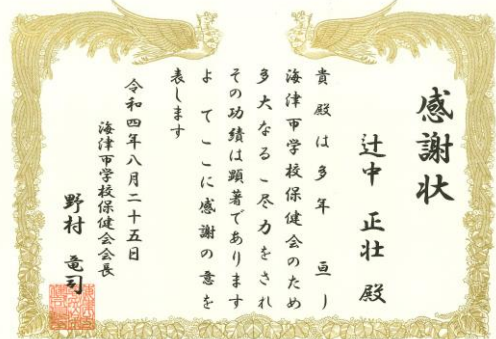 感謝状
辻中 正壮 殿
貴殿は多年 亘り
海津市学校保健会のため
多大なるご尽力をされ
その功績は顕著であります
よ てここに感謝の意を
表します
令和四年八月二十五日
海津市学校保健会会長
野村 竜司